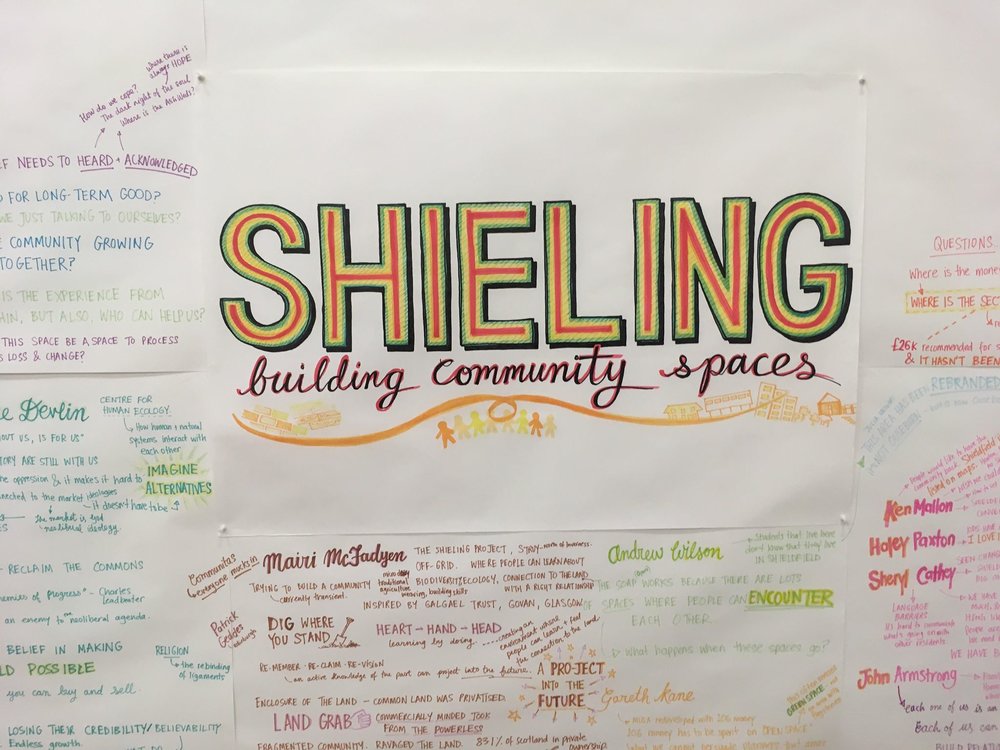 where there is
always HOPE
How do we cope?
The dark night of the soul
Where is the
F NEEDS TO HEARD + ACKNOWLEDGED
FOR LONG-TERM GOOD?
WE JUST TALKING TO OURSELVES?
COMMUNITY GROWING
TOGETHER?
IS THE EXPERIENCE FROM
HIN, BUT ALSO, WHO CAN HELP US?
THIS SPACE BE A SPACE TO PROCESS
LOSS & CHANGE?
SHIELING
building community spaces
QUESTIONS
Where is the mone
WHERE IS THE SEC
£26k recommended for s
& IT HASN'T BEEN
e Devlin
CENTRE FOR
HUMAN ECOLOGY
How human + natural
systems interact with
each other
OUT US, IS FOR US"
TORY ARE STILL WITH US
the oppression & it makes it hard to
nnected to the market ideologies
it doesn't have to be
IMAGINE
ALTERNATIVES
the market is god
neoliberal ideology.
- RECLAIM THE COMMONS
emies of Progress" - Charles
Leadbeater
an enemy to the neoliberal agenda.
BELIEF IN MAKING
LD POSSIBLE
you can buy and sell.
RELIGION
the rebinding
of ligaments
LOSING THEIR CREDIBILITY/BELIEVABILITY
Endless growth
Communitas
everyone mucks in
Patrick
Geddes
Mairi McFadyen
THE SHIELING PROJECT, STRUY- north of Inverness.
OFF-GRID. WHERE PEOPLE CAN LEARN ABOUT
BIODIVERSITY, ECOLOGY, CONNECTION TO THE LAND
TRYING TO BUILD A COMMUNITY
currently transient.
micro-
traditional
agriculture
weaving, building skills
WITH A RIGHT RELATIONSHIP
INSPIRED BY GALGAEL TRUST, GOVAN, GLASGOW
DIG WHERE
YOU STAND
HEART - HAND - HEAD
learning by doing
creating an
environment where
people can learn + feel
the connection to the land.
RE-MEMBER · RE-CLAIM · RE-VISION
an active knowledge of the past can project into the future.
A PROJECT
INTO THE
FUTURE
ENCLOSURE OF THE LAND - COMMON LAND WAS PRIVATISED.
LAND GRAB
COMMERCIALLY MINDED TOOK
FROM THE POWERLESS
FRAGMENTED COMMUNITY. RAVAGED THE LAND. 83.1% of scotland in private
ownership.
Andrew Wilson
Students that live here
don't know that they live
IN SHIELDFIELD
THE SOAP WORKS BECAUSE THERE ARE LOTS
OF SPACES WHERE PEOPLE CAN ENCOUNTER
EACH OTHER.
What happens when these spaces go?
Gareth Kane
MUGA redeveloped with 106 money
106 money has to be spent on OPEN SPACE
GREEN SPACE
REBRANDED
People would like to have the
community back.
Shieldfield
listed on maps.
Ken Mallon
Haley Paxton
I LOVE
Sheryl Cathey
SEEN CHAN
LANGUAGE
BARRIERS
it's hard to communicate
what's going on with
other residents.
WE HAVE
John Armstrong
each one of us is an
Each of us can
BUILD RELA